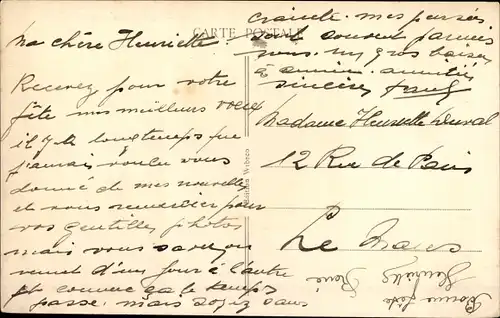 CARTE POSTALE
Ma chère Henriette.
Recevez pour votre
fête mes meilleurs vœux
il y a longtemps que
j'aurais voulu vous
donné de mes nouvelle
et vous remercier pour
vos gentilles photos
mais vous savez on
remet d'un jour à l'autre
et comme ça le temps
passe. mais soyez sans
crainte. mes pensées
sont souvent parmi
vous. un gros baiser
à amitiés
sincères
Madame Henriette Duval
12 Rue de Paris
Le Mans
Bonne fête
Henriette
René
Editions